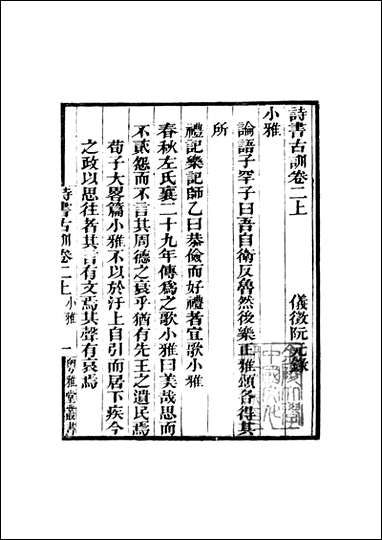 詩書古訓卷二上　　　儀徵阮元錄
小雅
論語子罕子曰吾自衛反魯然後樂正雅頌各得其
所
禮記樂記師乙曰恭儉而好禮者宜歌小雅
春秋左氏襄二十九年傳爲之歌小雅曰美哉思而
不貳怨而不言其周德之衰乎猶有先王之遺民焉
荀子大畧篇小雅不以於汙上自引而居下疾今
之政以思往者其言有文焉其聲有哀焉
詩書古訓卷二上　小雅　一　粵雅堂叢書